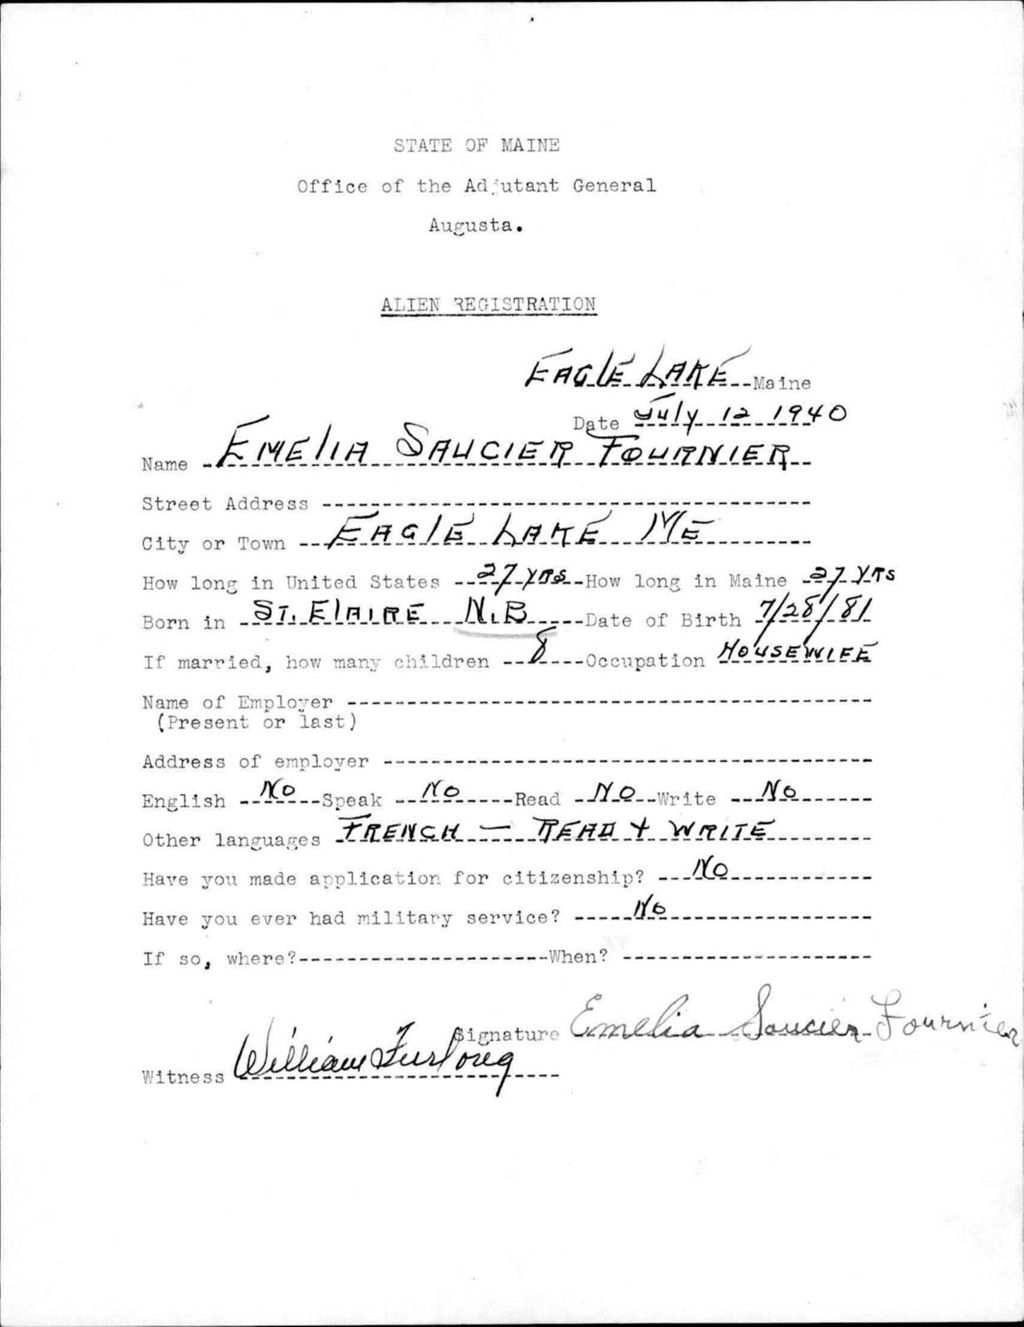 STATE OF MAINE
Office of the Adjutant General
Augusta.
ALIEN REGISTRATION
EAGLE LAKE Maine
Date July 12 1940
Name EMElIA SAUCIER FOURNIER
Street Address
City or Town EAGlE LAKE ME
How long in United States 27 yrs How long in Maine 27 yrs
Born in ST. ElAIRE N.B Date of Birth 7/28/81
If married, how many children 8 Occupation HOUSEWIFE
Name of Employer
(Present or last)
Address of employer
English No Speak No Read No Write No
Other languages FRENCH — READ + WRITE
Have you made application for citizenship? No
Have you ever had military service? No
If so, where? When?
Signature Emelia Saucier Fournier
Witness William Furlong